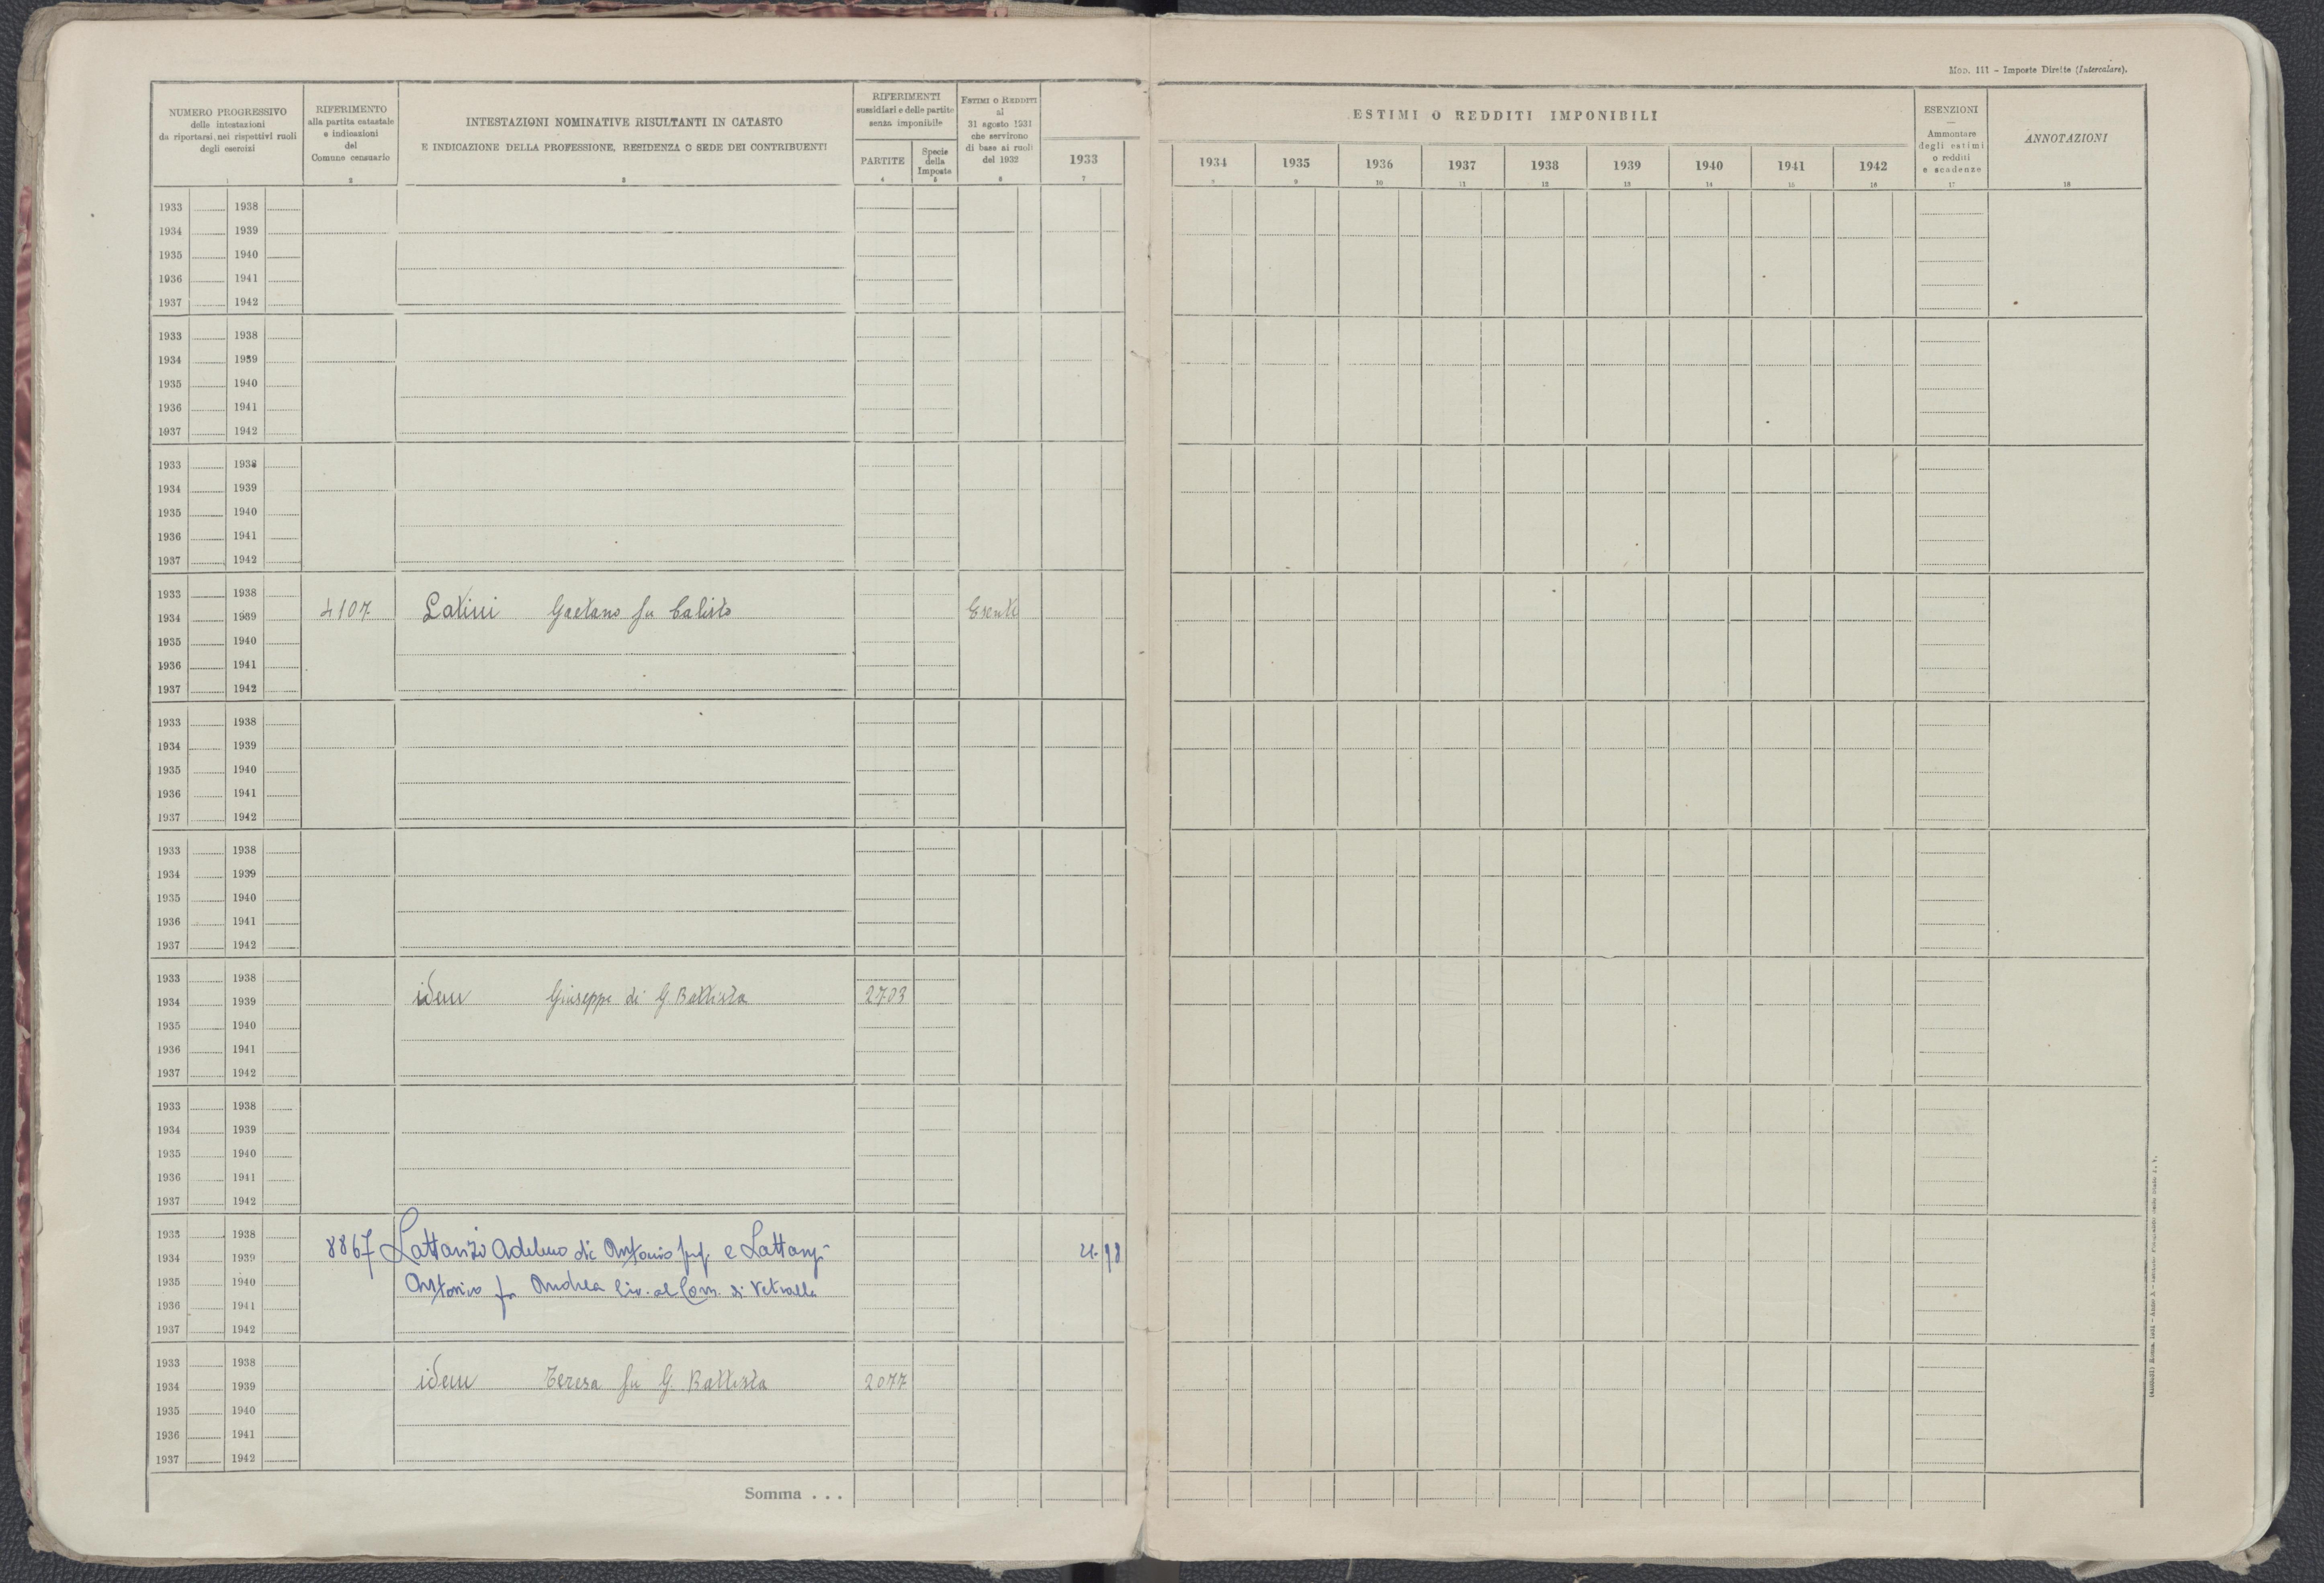 Mod. 111 - Imposte Dirette (Intercalare).
NUMERO PROGRESSIVO
delle intestazioni
da riportarsi nei rispettivi ruoli
degli esercizi
1
RIFERIMENTO
alla partita catastale
e indicazioni
del
Comune censuario
2
INTESTAZIONI NOMINATIVE RISULTANTI IN CATASTO
E INDICAZIONE DELLA PROFESSIONE, RESIDENZA O SEDE DEI CONTRIBUENTI
3
RIFERIMENTI
sussidiari e delle partite
senza imponibile
PARTITE
4
Specie
della
Imposta
5
ESTIMI O REDDITI
al
31 agosto 1931
che servirono
di base ai ruoli
del 1932
6
1933
7
ESTIMI O REDDITI IMPONIBILI
1934 1935 1936 1937 1938 1939 1940 1941 1942
9 10 11 12 13 14 15 16
ESENZIONI
Ammontare
degli estimi
o redditi
e scadenze
17
ANNOTAZIONI
18
1933 1938
1934 1939
1935 1940
1936 1941
1937 1942
1933 1938
1934 1939
1935 1940
1936 1941
1937 1942
1933 1938
1934 1939
1935 1940
1936 1941
1937 1942
1933 1938
1934 1939 4107 Latini Gaetano fu Calisto Esente
1935 1940
1936 1941
1937 1942
1933 1938
1934 1939
1935 1940
1936 1941
1937 1942
1933 1938
1934 1939
1935 1940
1936 1941
1937 1942
1933 1938
1934 1939 idem Giuseppe di G. Battista 2703
1935 1940
1936 1941
1937 1942
1933 1938
1934 1939
1935 1940
1936 1941
1937 1942
1933 1938
1934 1939 8867 Lattanzi Adelmo di Antonio e Lattanzi
1935 1940 Antonio fu Andrea liv. al Com. di Vetralla
1936 1941
1937 1942
1933 1938
1934 1939 idem Teresa fu G. Battista 2077
1935 1940
1936 1941
1937 1942
Somma . . .